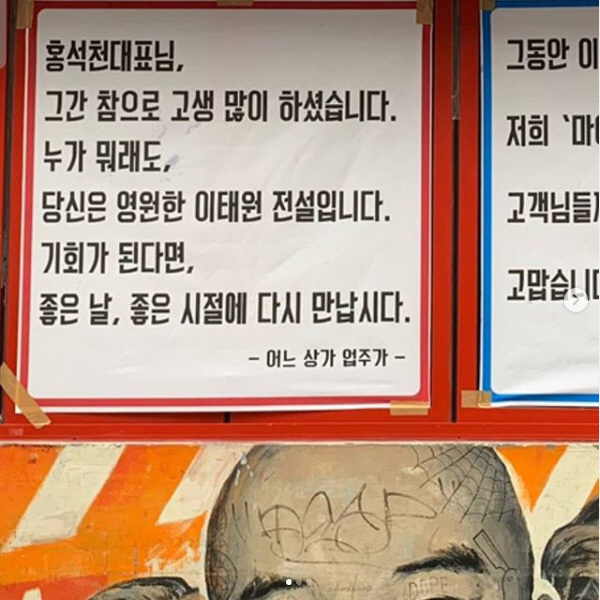 홍석천대표님,
그간 참으로 고생 많이 하셨습니다.
누가 뭐래도,
당신은 영원한 이태원 전설입니다.
기회가 된다면,
좋은 날, 좋은 시절에 다시 만납시다.
- 어느 상가 업주가 -
그동안 이
저희 '마
고객님들
고맙습니다
DOPE